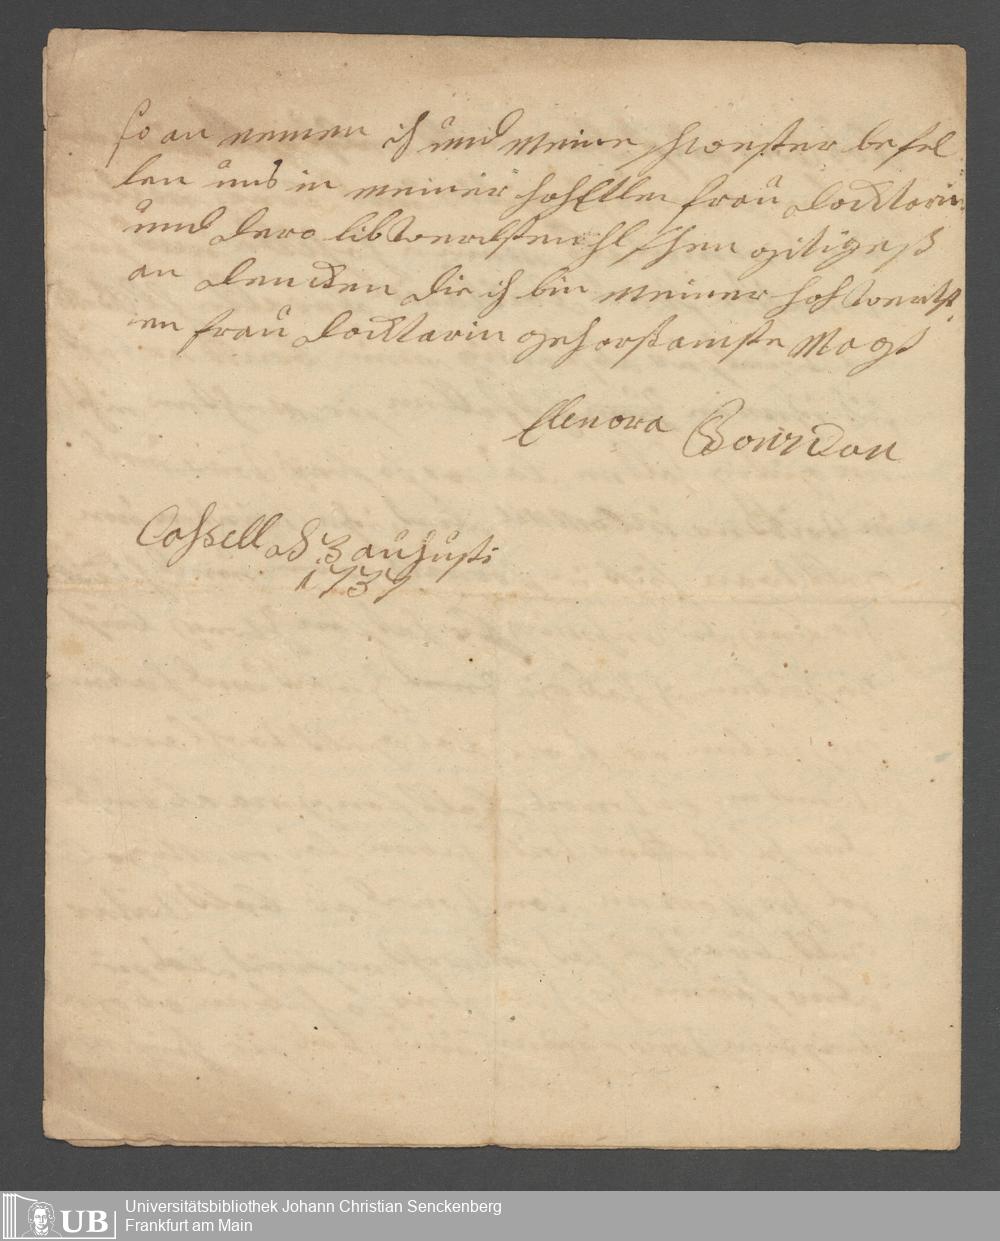 so an nemen ich und meine schwester befel
len uns in meiner hoh Etlen frau docktorin
und dero libwerdsten gitiges
an dencken die ich bin meiner hoh wertst
en frau docktarin gehorsamste Magd
Elenora Bourdon
Cassell d 3 augusti
1739
Universitätsbibliothek Johann Christian Senckenberg
Frankfurt am Main
UB